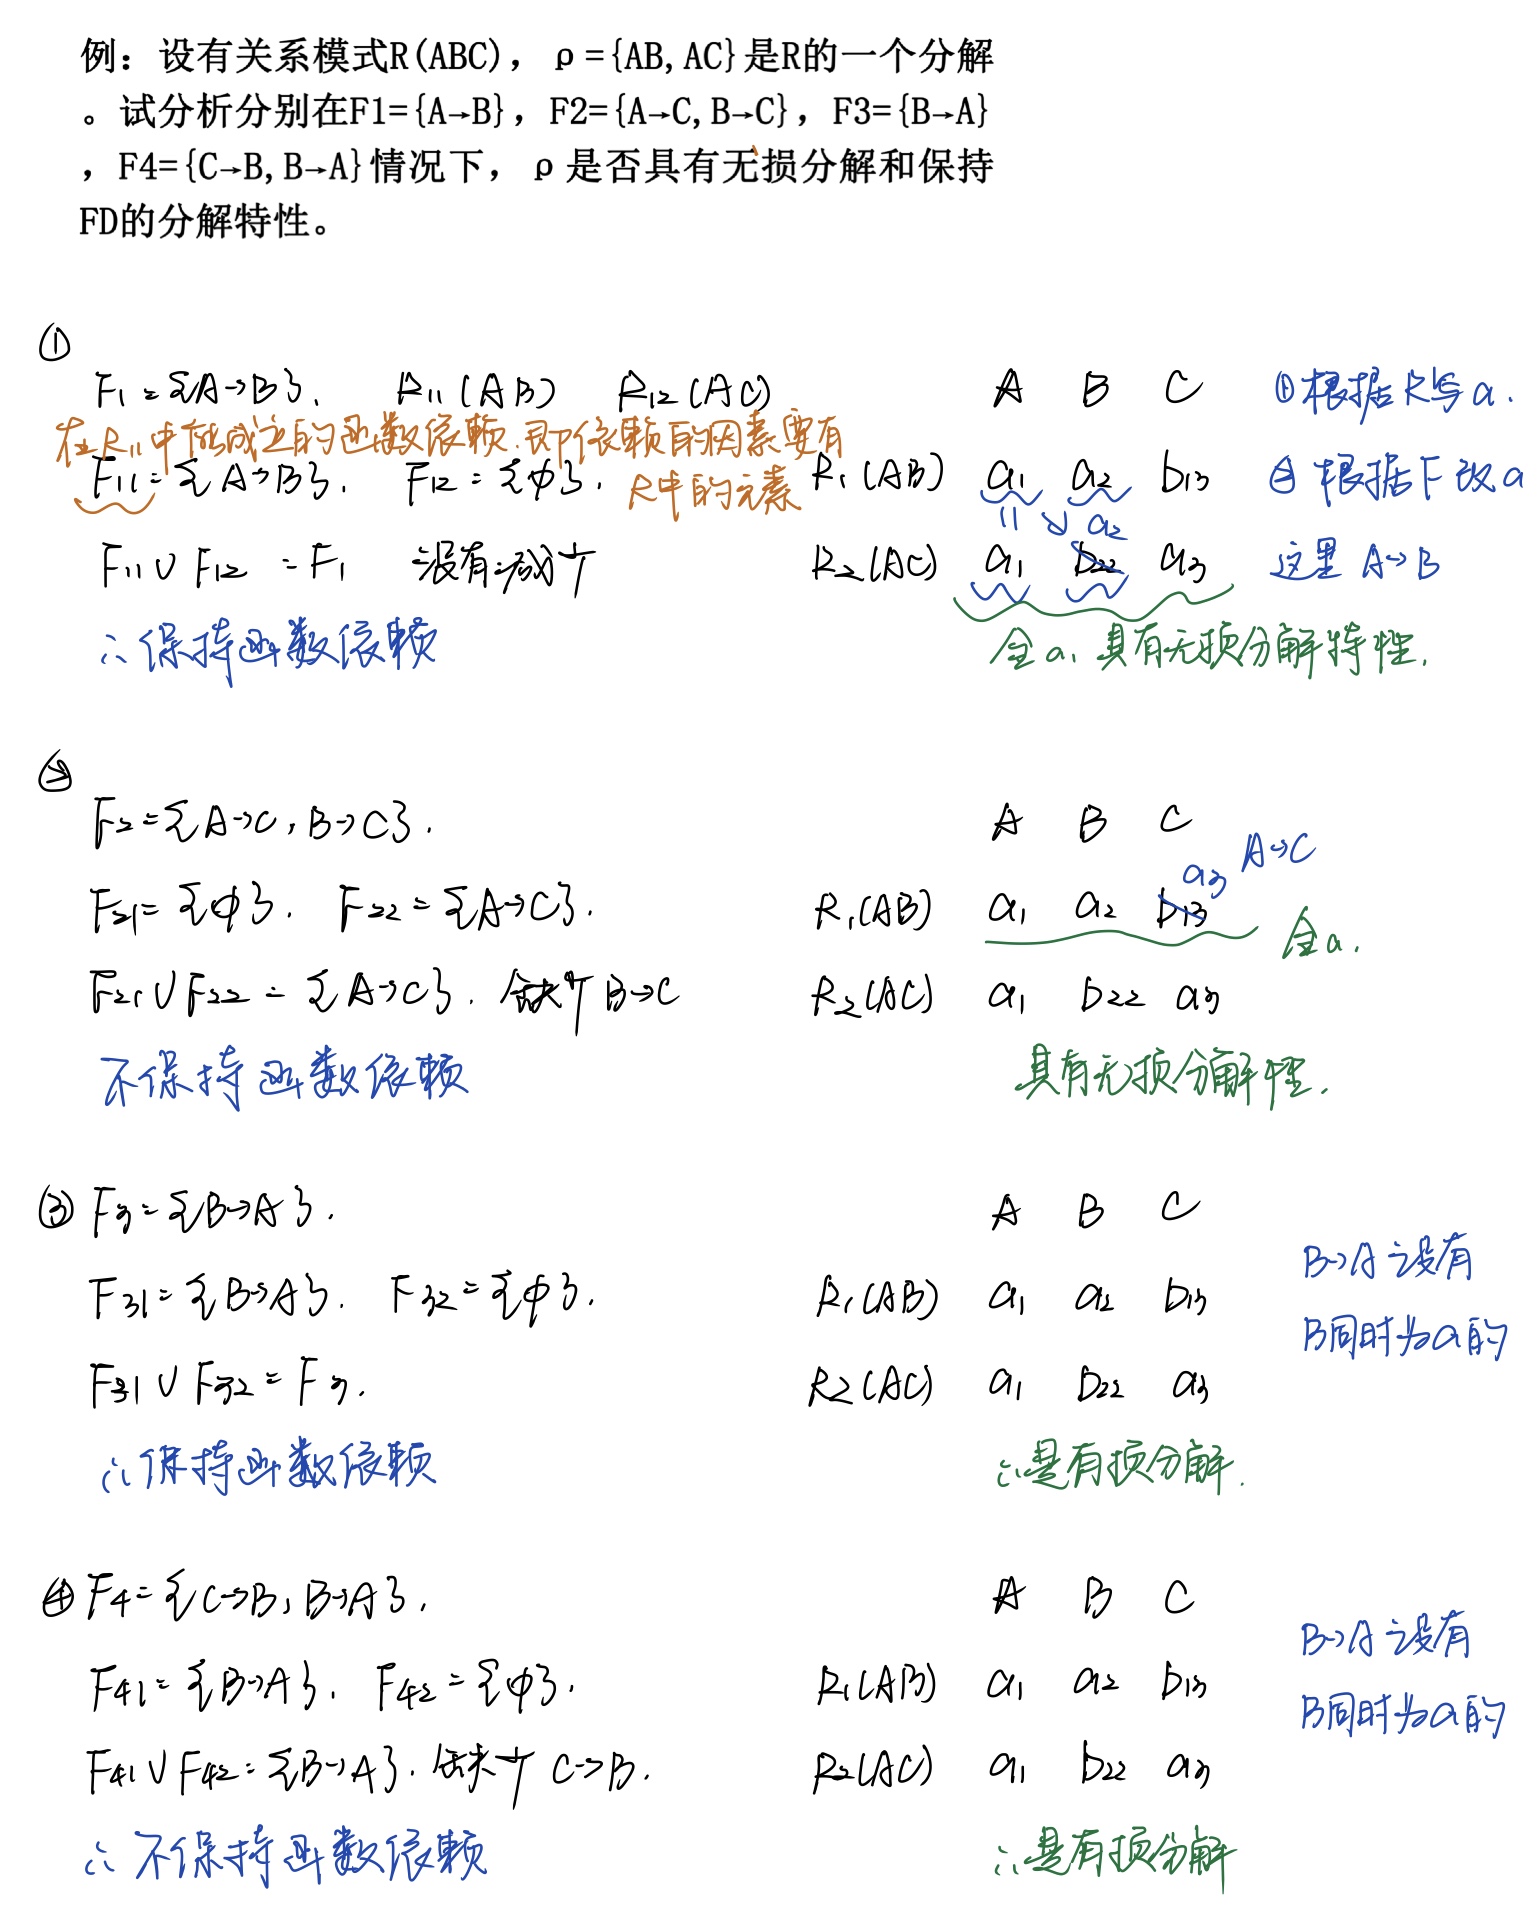 例：设有关系模式R(ABC)，ρ={AB,AC}是R的一个分解
。试分析分别在F1={A→B}，F2={A→C,B→C}，F3={B→A}
，F4={C→B,B→A}情况下，ρ是否具有无损分解和保持
FD的分解特性。
①
F₁={A→B}. R₁₁(AB) R₁₂(AC)
在R₁₁中能成立的函数依赖.即依赖的因素要有
R中的元素
F₁₁={A→B}. F₁₂={φ}.
F₁₁∪F₁₂=F₁ 没有减少
∴保持函数依赖
A B C ①根据R写a.
R₁(AB) a₁ a₂ b₁₃ ②根据F改a
= ↘ a₂
R₂(AC) a₁ b₂₂ a₃ 这里A→B
全a,具有无损分解特性.
②
F₂={A→C,B→C}.
F₂₁={φ}. F₂₂={A→C}.
F₂₁∪F₂₂={A→C}. 缺少B→C
不保持函数依赖
A B C
a₃ A→C
R₁(AB) a₁ a₂ b₁₃ 全a.
R₂(AC) a₁ b₂₂ a₃
具有无损分解性.
③ F₃={B→A}.
F₃₁={B→A}. F₃₂={φ}.
F₃₁∪F₃₂=F₃.
∴保持函数依赖
A B C
R₁(AB) a₁ a₂ b₁₃
R₂(AC) a₁ b₂₂ a₃
B→A 没有
B同时为a的
∴是有损分解.
④ F₄={C→B,B→A}.
F₄₁={B→A}. F₄₂={φ}.
F₄₁∪F₄₂={B→A}. 缺少C→B.
∴不保持函数依赖
A B C
R₁(AB) a₁ a₂ b₁₃
R₂(AC) a₁ b₂₂ a₃
B→A 没有
B同时为a的
∴是有损分解